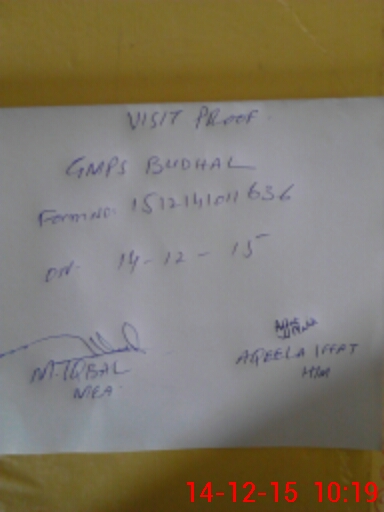 VISIT PROOF.
GMPS BUDHAL
Form No. 151214101636
ON. 14-12-15
M. IQBAL
MEA
AQEELA IFFAT
HM
14-12-15 10:19